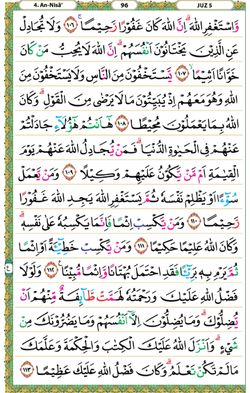 4. An-Nisā' 96 JUZ 5
وَٱسْتَغْفِرِ ٱللَّهَ ۖ إِنَّ ٱللَّهَ كَانَ غَفُورًا رَّحِيمًا ١٠٦ وَلَا تُجَادِلْ
عَنِ ٱلَّذِينَ يَخْتَانُونَ أَنفُسَهُمْ ۚ إِنَّ ٱللَّهَ لَا يُحِبُّ مَن كَانَ
خَوَّانًا أَثِيمًا ١٠٧ يَسْتَخْفُونَ مِنَ ٱلنَّاسِ وَلَا يَسْتَخْفُونَ مِنَ
ٱللَّهِ وَهُوَ مَعَهُمْ إِذْ يُبَيِّتُونَ مَا لَا يَرْضَىٰ مِنَ ٱلْقَوْلِ ۚ وَكَانَ
ٱللَّهُ بِمَا يَعْمَلُونَ مُحِيطًا ١٠٨ هَٰٓأَنتُمْ هَٰٓؤُلَآءِ جَٰدَلْتُمْ
عَنْهُمْ فِى ٱلْحَيَوٰةِ ٱلدُّنْيَا فَمَن يُجَٰدِلُ ٱللَّهَ عَنْهُمْ يَوْمَ
ٱلْقِيَٰمَةِ أَم مَّن يَكُونُ عَلَيْهِمْ وَكِيلًا ١٠٩ وَمَن يَعْمَلْ
سُوٓءًا أَوْ يَظْلِمْ نَفْسَهُۥ ثُمَّ يَسْتَغْفِرِ ٱللَّهَ يَجِدِ ٱللَّهَ غَفُورًا
رَّحِيمًا ١١٠ وَمَن يَكْسِبْ إِثْمًا فَإِنَّمَا يَكْسِبُهُۥ عَلَىٰ نَفْسِهِۦ ۚ
وَكَانَ ٱللَّهُ عَلِيمًا حَكِيمًا ١١١ وَمَن يَكْسِبْ خَطِيٓـَٔةً أَوْ إِثْمًا
ثُمَّ يَرْمِ بِهِۦ بَرِيٓـًٔا فَقَدِ ٱحْتَمَلَ بُهْتَٰنًا وَإِثْمًا مُّبِينًا ١١٢ وَلَوْلَا
فَضْلُ ٱللَّهِ عَلَيْكَ وَرَحْمَتُهُۥ لَهَمَّت طَّآئِفَةٌ مِّنْهُمْ أَن
يُضِلُّوكَ وَمَا يُضِلُّونَ إِلَّآ أَنفُسَهُمْ ۖ وَمَا يَضُرُّونَكَ مِن
شَىْءٍ ۚ وَأَنزَلَ ٱللَّهُ عَلَيْكَ ٱلْكِتَٰبَ وَٱلْحِكْمَةَ وَعَلَّمَكَ
مَا لَمْ تَكُن تَعْلَمُ ۚ وَكَانَ فَضْلُ ٱللَّهِ عَلَيْكَ عَظِيمًا ١١٣